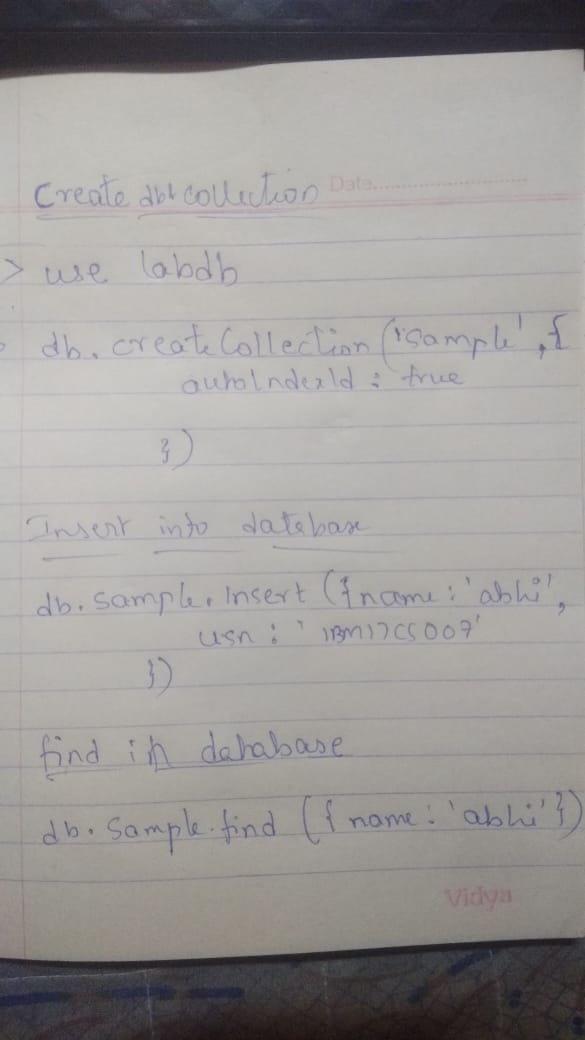 Create db & collection Date
> use labdb
db. createCollection ('sample', {
autoIndexId : true
})
Insert into database
db. sample. insert ({name : 'abhi',
usn : '1BM17CS007'
})
find in database
db. sample. find ({ name : 'abhi' })
Vidya